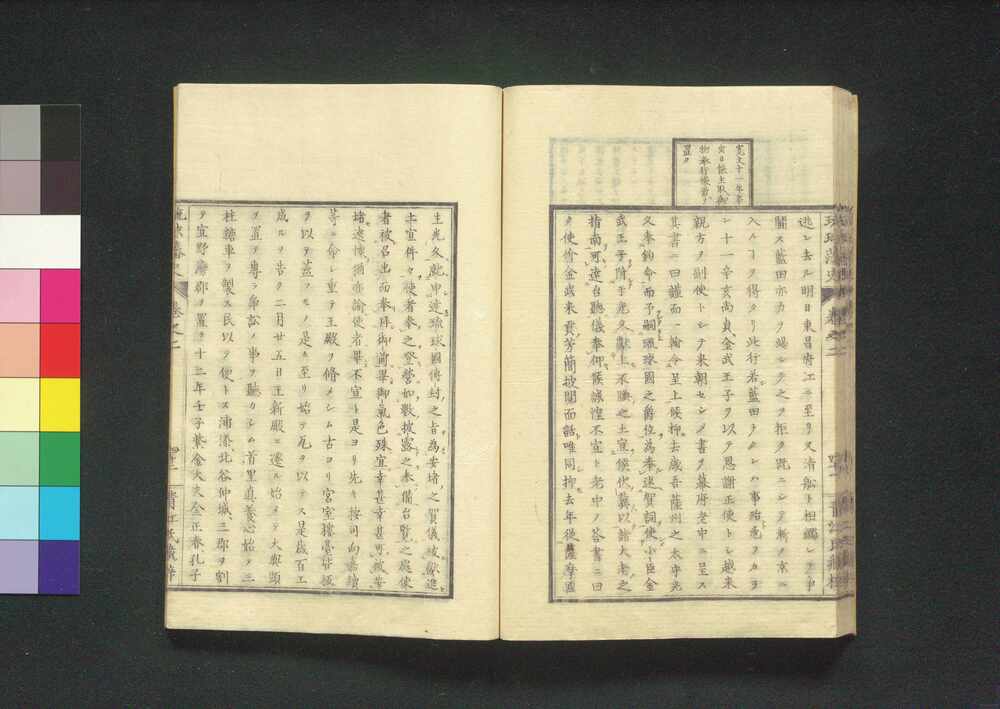 寛文十一年
物奉行
置ク
逃レ去ル明日東昌府エニ至リ又清船ト相觸レテ爭
鬪ス藍田亦力ヲ竭シテ之ヲ拒ク既ニシテ漸ク京ニ
入ルコヲ得タリ此行若藍田ヲナカルシハ事殆ト危フカラ
ン十一年辛亥尚貞金武王子ヲ以テ恩謝正使トシ越来
親方ヲ副使トシテ来朝セシメ書ヲ幕府老中ニ呈ス
其書ニ曰謹而一翰令呈上候抑去歳吾薩州之太守光
久奉鈞命而予嗣琉球國之爵位為奉述賀詞使小臣金
武王子附于光久獻上不腆之土宜候伏冀以諸大老之
指南可達台聽儀奉仰候誠惶不宣ト老中ノ答書ニ曰
夕使价金武来貢芳簡披閲面話唯同抑去年従薩摩國
生光久就申達琉球國傳封之旨為安堵之賀儀被獻進
土宜件々使者奉之登營如數披露之奉備台覧之處使
者被召出而奉拜御前畢御氣色殊宜幸甚幸甚可被安
堵遠懷猶亦諭使者畢不宣ト是ヨリ先キ按司向嘉續
等ニ命シ重テ王殿ヲ脩メシム古ヨリ宮室樓臺皆板
ヲ以テ蓋フモノ是ニ至リ始テ瓦ヲ以テス是歳百工
成ルヲ告ク二月廿五日王新殿ニ遷ル始メテ大與頭
ヲ置テ專ラ爭訟ノ事ヲ聽カシム首里真養心始メテ三
柱糖車ヲ製ス民以テ便トス浦添北谷仲城三郡ヲ割
テ宜野灣郡ヲ置ク十二年壬子紫金大夫金正春孔子
琉球藩史 巻之二